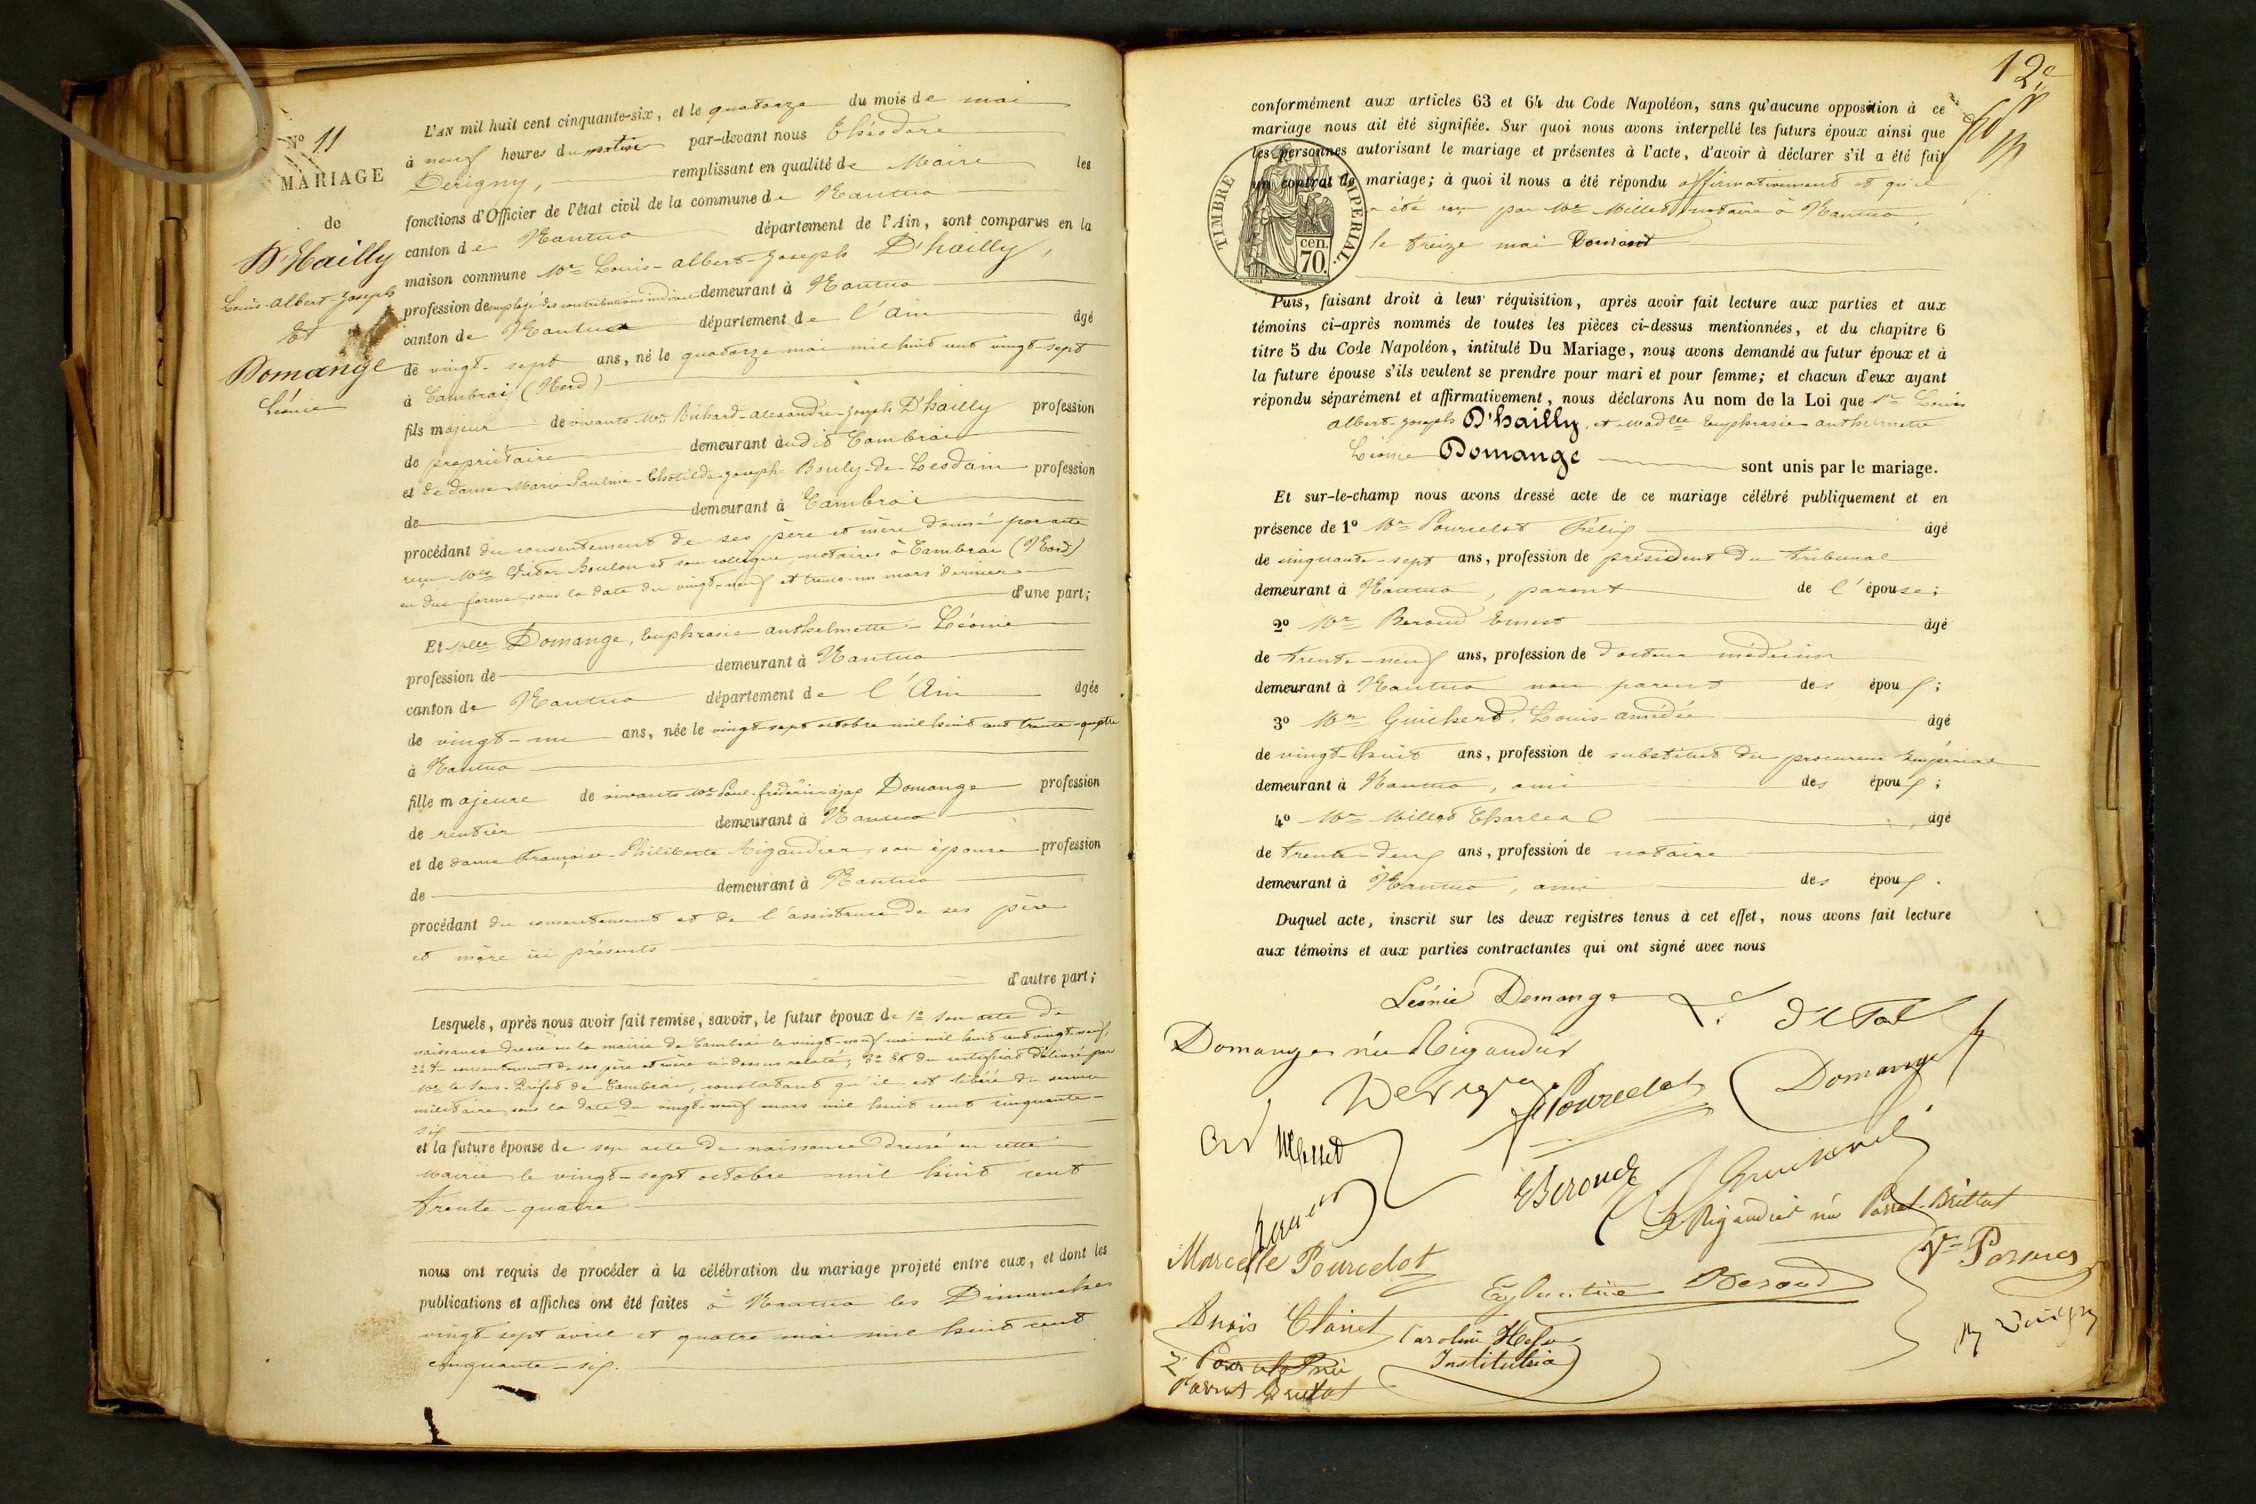 N° 11
MARIAGE
de
D'Hailly
Louis-Albert-Joseph
Et
Domange
Léonie
L'AN mil huit cent cinquante-six, et le quatorze du mois de mai
à neuf heures du matin par-devant nous Théodore
Derigny, remplissant en qualité de Maire les
fonctions d'Officier de l'état civil de la commune de Nantua
canton de Nantua département de l'Ain, sont comparus en la
maison commune Mr Louis-albert-Joseph D'hailly,
profession de employé des contributions indirectes demeurant à Nantua
canton de Nantua département de l'ain âgé
de vingt-sept ans, né le quatorze mai mil huit cent vingt sept
à Cambrai (Nord)
fils majeur de vivants Mr Richard-alexandre-Joseph D'hailly profession
de propriétaire demeurant audit Cambrai
et de dame Marie Pauline-Clotilde-Joseph Bouly-de Lesdain profession
de demeurant à Cambrai
procédant du consentement de ses père et mère donné par acte
reçu Mes Boulon et son collègue notaires à Cambrai (Nord)
en due forme, sous la date du vingt-neuf et trente-un mars dernier
d'une part;
Et Melle Domange, Euphrasie-anthelmette-Léonie
profession de demeurant à Nantua
canton de Nantua département de l'Ain âgée
de vingt-un ans, née le vingt-sept octobre mil huit cent trente-quatre
à Nantua
fille majeure de vivants Mr Domange profession
de rentier demeurant à Nantua
et de dame Françoise-Philiberte Rigaudier, son épouse profession
de demeurant à Nantua
procédant du consentement et de l'assistance de ses père
et mère ici présents
d'autre part;
Lesquels, après nous avoir fait remise, savoir, le futur époux de 1° son acte de
naissance dressé en la mairie de Cambrai le vingt-neuf mai mil huit cent vingt-neuf,
2° du consentement de ses père et mère ci-dessus relaté; 3° Et du certificat délivré par
Mr le Sous-Préfet de Cambrai, constatant qu'il est libéré du service
militaire, sous la date du vingt-neuf mars mil huit cent cinquante-
six
et la future épouse de son acte de naissance dressé en cette
mairie le vingt-sept octobre mil huit cent
trente-quatre
nous ont requis de procéder à la célébration du mariage projeté entre eux, et dont les
publications et affiches ont été faites à Nantua les Dimanches
vingt sept avril et quatre mai mil huit cent
cinquante-six.
12e
conformément aux articles 63 et 64 du Code Napoléon, sans qu'aucune opposition à ce
mariage nous ait été signifiée. Sur quoi nous avons interpellé les futurs époux ainsi que
les personnes autorisant le mariage et présentes à l'acte, d'avoir à déclarer s'il a été fait
un contrat de mariage; à quoi il nous a été répondu affirmativement et qu'il
a été reçu par Me Millet, notaire à Nantua,
le treize mai Courant
TIMBRE IMPERIAL.
cen.
70.
Puis, faisant droit à leur réquisition, après avoir fait lecture aux parties et aux
témoins ci-après nommés de toutes les pièces ci-dessus mentionnées, et du chapitre 6
titre 5 du Code Napoléon, intitulé Du Mariage, nous avons demandé au futur époux et à
la future épouse s'ils veulent se prendre pour mari et pour femme; et chacun d'eux ayant
répondu séparément et affirmativement, nous déclarons Au nom de la Loi que Mr Louis
albert-Joseph D'hailly, et Madlle Euphrasie anthelmette
Léonie Domange sont unis par le mariage.
Et sur-le-champ nous avons dressé acte de ce mariage célébré publiquement et en
présence de 1° Mr Pourcelot Félix âgé
de cinquante-sept ans, profession de président du tribunal
demeurant à Nantua, parent de l'épouse;
2° Mr Beroud Ernest âgé
de trente-neuf ans, profession de docteur médecin
demeurant à Nantua non parent des époux;
3° Mr Guicherd, Louis-amédée âgé
de vingt-huit ans, profession de substitut du procureur Impérial
demeurant à Nantua, ami des époux;
4° Mr Millet Charles âgé
de trente-deux ans, profession de notaire
demeurant à Nantua, ami des époux.
Duquel acte, inscrit sur les deux registres tenus à cet effet, nous avons fait lecture
aux témoins et aux parties contractantes qui ont signé avec nous
Léonie Domange
Domange née Rigaudier
Derigny
Pourcelot
Domange
Millet
E Beroud
Guicherd
Rigaudier née Passet-Brillat
Marcelle Pourcelot
Eglantine Beroud
Anaïs Clairet
Caroline
Institutrice